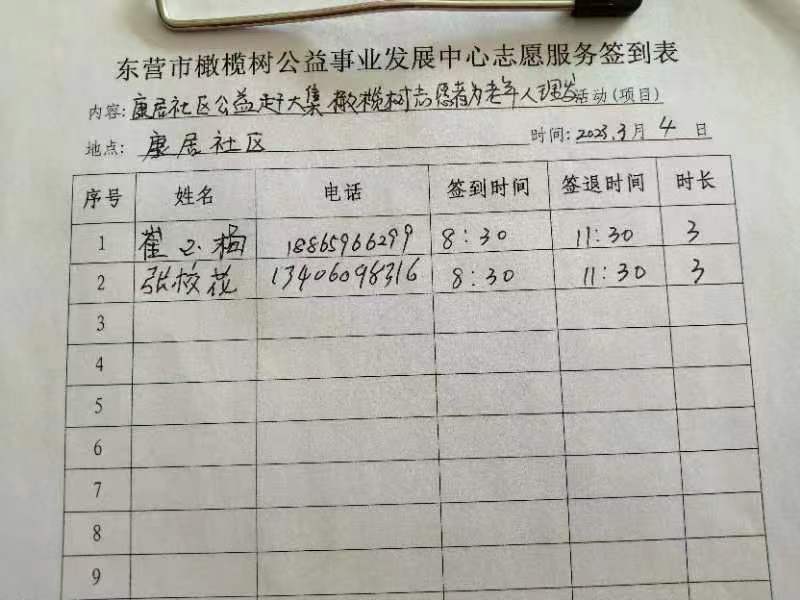 东营市橄榄树公益事业发展中心志愿服务签到表
内容:康居社区公益赶大集橄榄树志愿者为老年人理发活动(项目)
地点:康居社区 时间:2023.3月4日
序号 姓名 电话 签到时间 签退时间 时长
1 崔 梅 18865966299 8:30 11:30 3
2 张校花 13406098316 8:30 11:30 3
3
4
5
6
7
8
9